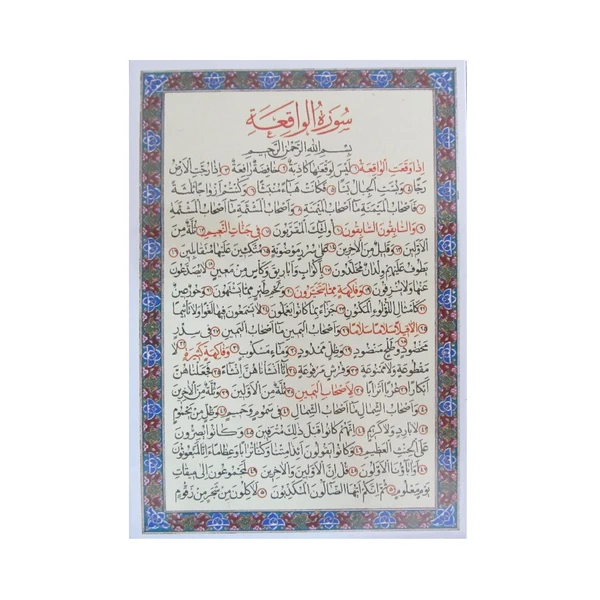 سورة الواقعة
بسم الله الرحمن الرحيم
إذا وقعت الواقعة ١ ليس لوقعتها كاذبة ٢ خافضة رافعة ٣ إذا رجت الأرض
رجا ٤ وبست الجبال بسا ٥ فكانت هباء منبثا ٦ وكنتم أزواجا ثلاثة ٧
فأصحاب الميمنة ما أصحاب الميمنة ٨ وأصحاب المشئمة ما أصحاب المشئمة
٩ والسابقون السابقون ١٠ أولئك المقربون ١١ في جنات النعيم ١٢ ثلة من
الأولين ١٣ وقليل من الآخرين ١٤ على سرر موضونة ١٥ متكئين عليها متقابلين ١٦
يطوف عليهم ولدان مخلدون ١٧ بأكواب وأباريق وكأس من معين ١٨ لا يصدعون
عنها ولا ينزفون ١٩ وفاكهة مما يتخيرون ٢٠ ولحم طير مما يشتهون ٢١ وحور عين
٢٢ كأمثال اللؤلؤ المكنون ٢٣ جزاء بما كانوا يعملون ٢٤ لا يسمعون فيها لغوا ولا تأثيما
٢٥ إلا قيلا سلاما سلاما ٢٦ وأصحاب اليمين ما أصحاب اليمين ٢٧ في سدر
مخضود ٢٨ وطلح منضود ٢٩ وظل ممدود ٣٠ وماء مسكوب ٣١ وفاكهة كثيرة ٣٢ لا
مقطوعة ولا ممنوعة ٣٣ وفرش مرفوعة ٣٤ إنا أنشأناهن إنشاء ٣٥ فجعلناهن
أبكارا ٣٦ عربا أترابا ٣٧ لأصحاب اليمين ٣٨ ثلة من الأولين ٣٩ وثلة من الآخرين
٤٠ وأصحاب الشمال ما أصحاب الشمال ٤١ في سموم وحميم ٤٢ وظل من يحموم
٤٣ لا بارد ولا كريم ٤٤ إنهم كانوا قبل ذلك مترفين ٤٥ وكانوا يصرون
على الحنث العظيم ٤٦ وكانوا يقولون أئذا متنا وكنا ترابا وعظاما أئنا لمبعوثون
٤٧ أوآباؤنا الأولون ٤٨ قل إن الأولين والآخرين ٤٩ لمجموعون إلى ميقات
يوم معلوم ٥٠ ثم إنكم أيها الضالون المكذبون ٥١ لآكلون من شجر من زقوم